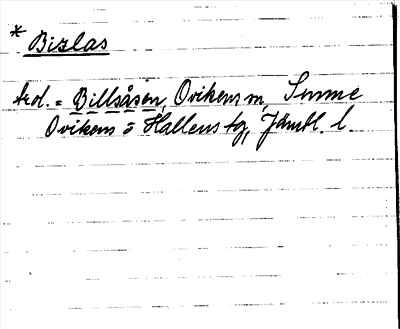 * Bislas
trol. = Billsåsen, Ovikens sn, Sunne
Ovikens o Hallens tg, Jämtl. l.